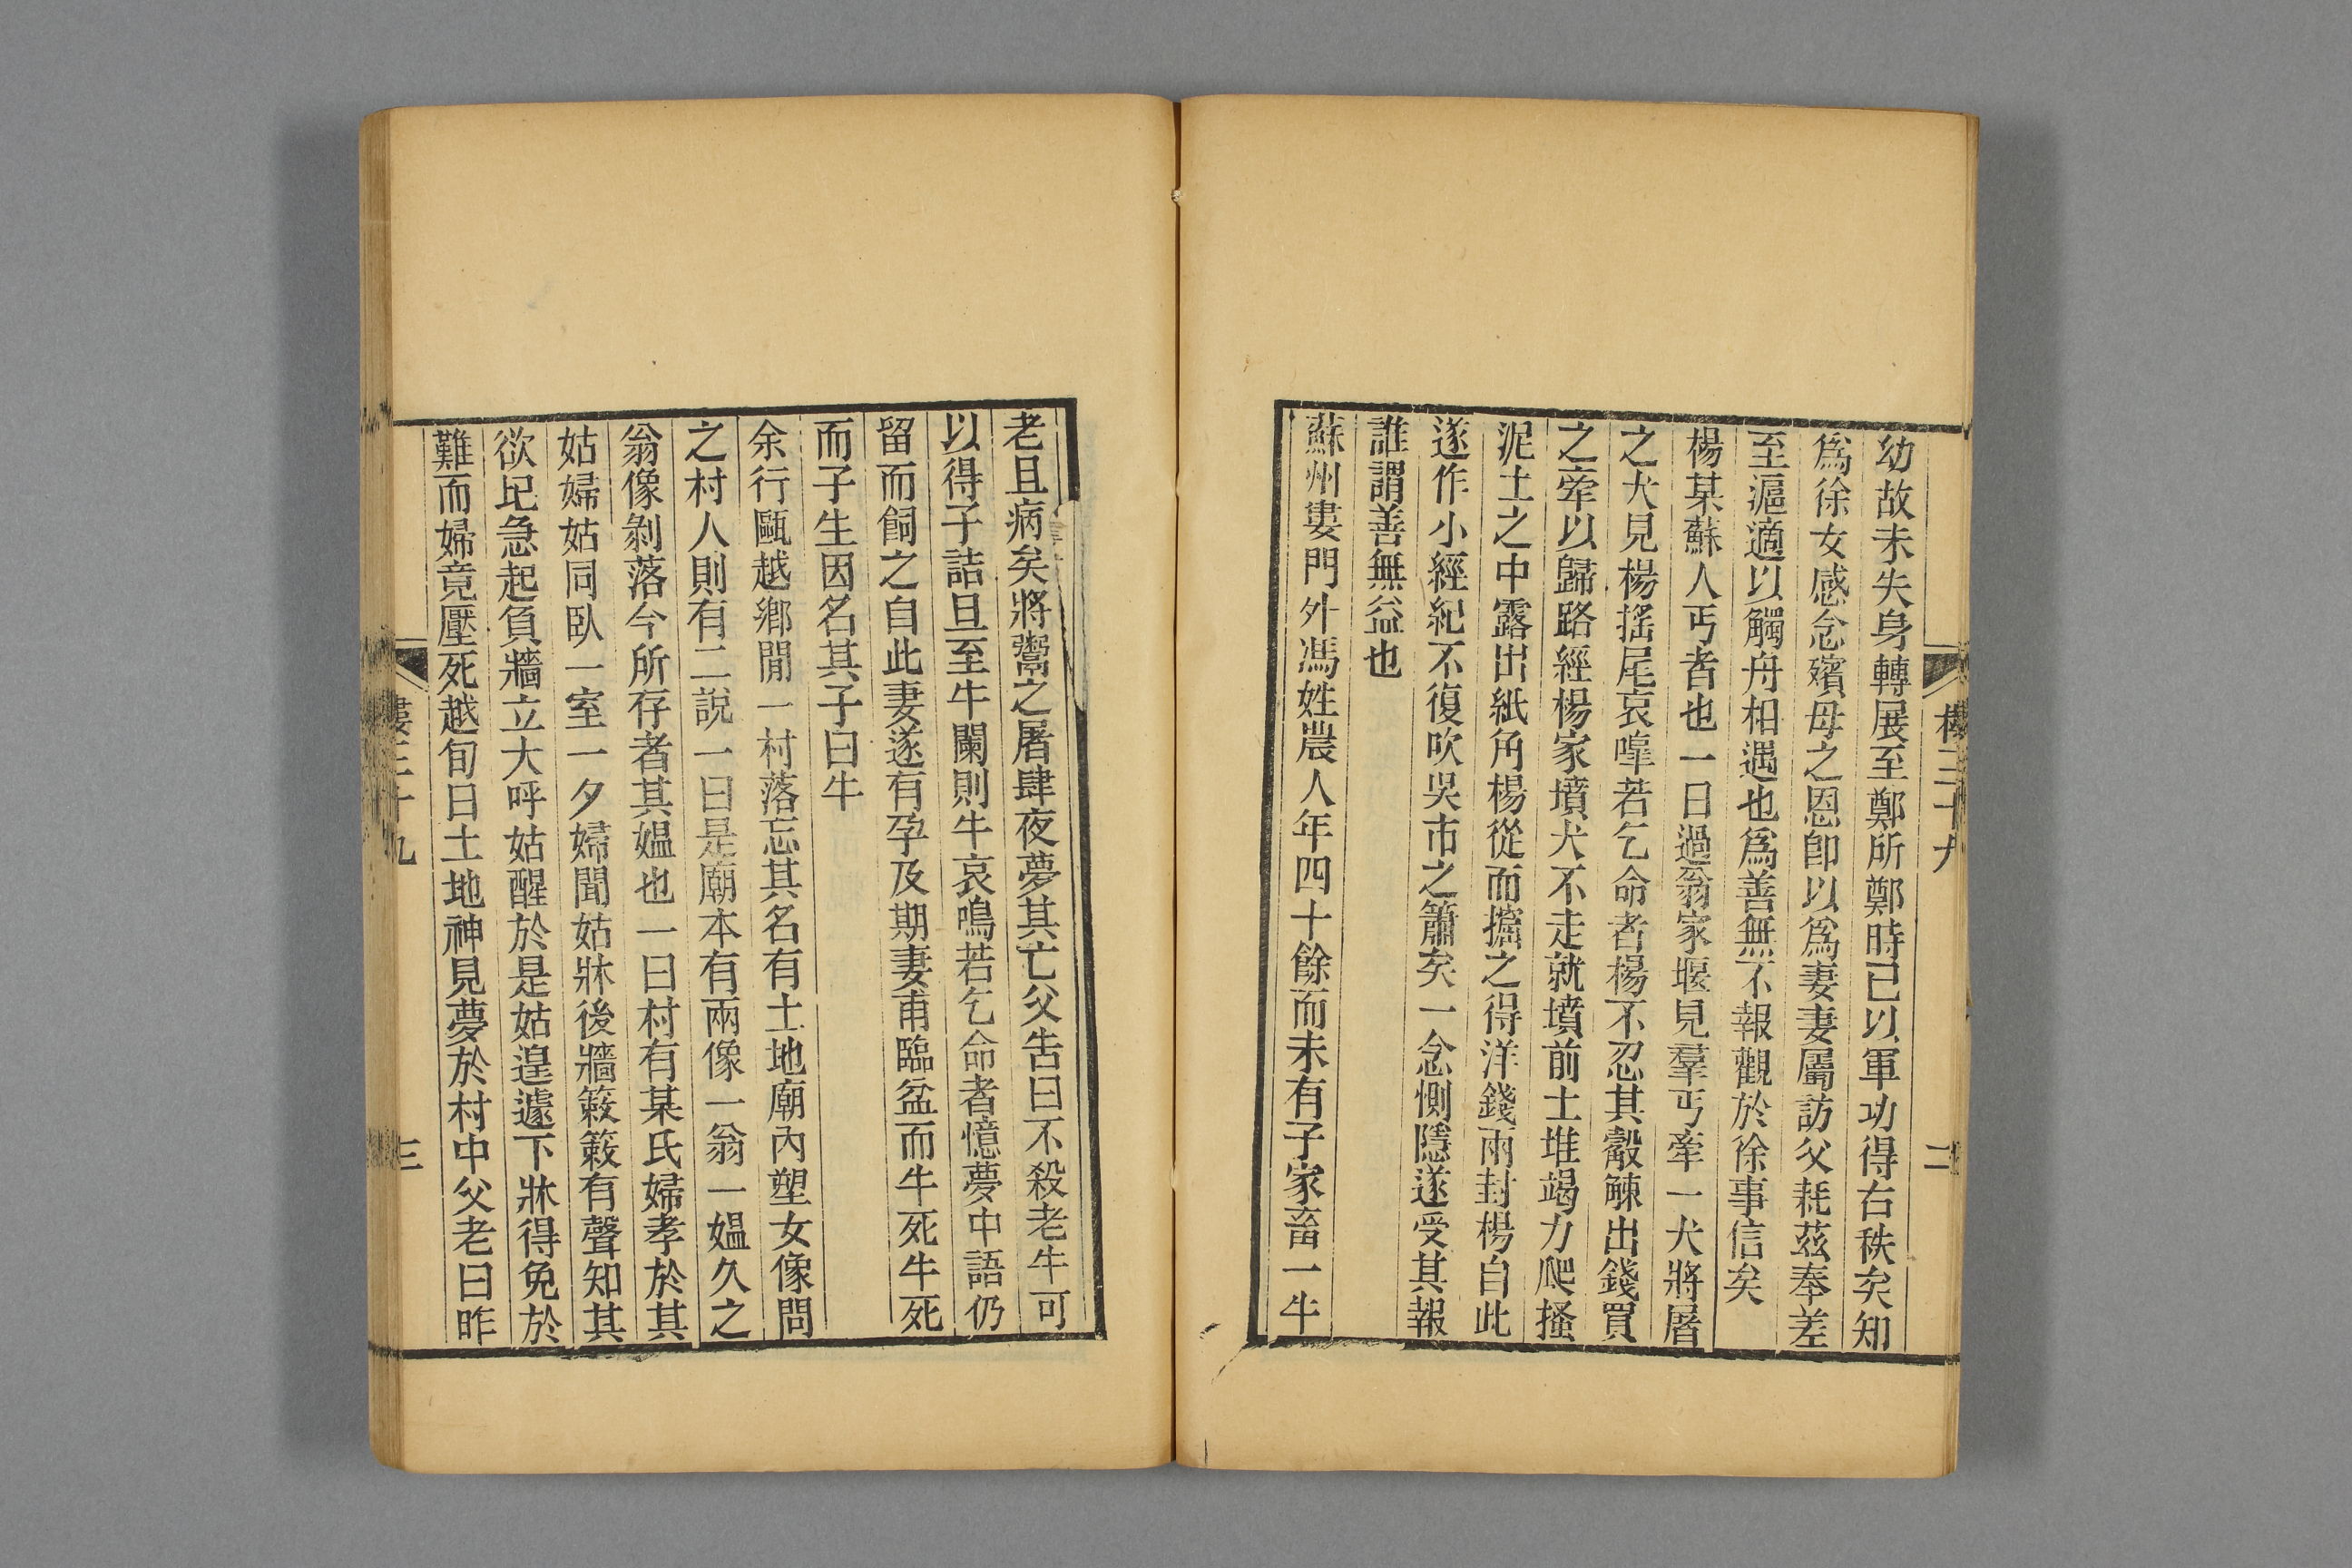 幼故未失身轉展至鄭所鄭時已以軍功得右秩矣知
爲徐女感念殯母之恩卽以爲妻妻屬訪父耗茲奉差
至滬適以觸舟相遇也爲善無不報觀於徐事信矣
楊某蘇人丐者也一日過翁家堰見羣丐牽一犬將屠
之犬見楊搖尾哀嘷若乞命者楊不忍其觳觫出錢買
之牽以歸路經楊家墳犬不走就墳前土堆竭力爬搔
泥土之中露出紙角楊從而攟之得洋錢兩封楊自此
遂作小經紀不復吹吳市之簫矣一念惻隱遂受其報
誰謂善無益也
蘇州婁門外馮姓農人年四十餘而未有子家畜一牛
樓三十九
二
老且病矣將鬻之屠肆夜夢其亡父吿曰不殺老牛可
以得子詰旦至牛闌則牛哀鳴若乞命者憶夢中語仍
留而飼之自此妻遂有孕及期妻甫臨盆而牛死牛死
而子生因名其子曰牛
余行甌越鄉閒一村落忘其名有土地廟內塑女像問
之村人則有二說一曰是廟本有兩像一翁一媼久之
翁像剝落今所存者其媼也一曰村有某氏婦孝於其
姑婦姑同臥一室一夕婦聞姑牀後牆簌簌有聲知其
欲圮急起負牆立大呼姑醒於是姑遑遽下牀得免於
難而婦竟壓死越旬日土地神見夢於村中父老曰昨
三十九
三